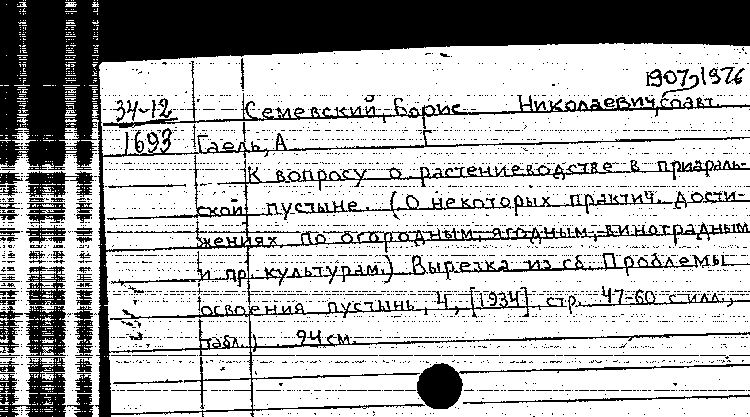 1907-1976
34-12 Семевский, Борис Николаевич, соавт.
1693 Гаель, А
К вопросу о растениеводстве в приараль-
ской пустыне. (О некоторых практич. дости-
жениях по огородным, ягодным, виноградным
и пр. культурам.) Вырезка из сб. Проблемы
освоения пустынь, 4, [1934] стр. 47-60 с илл.,
табл.) 24 см.